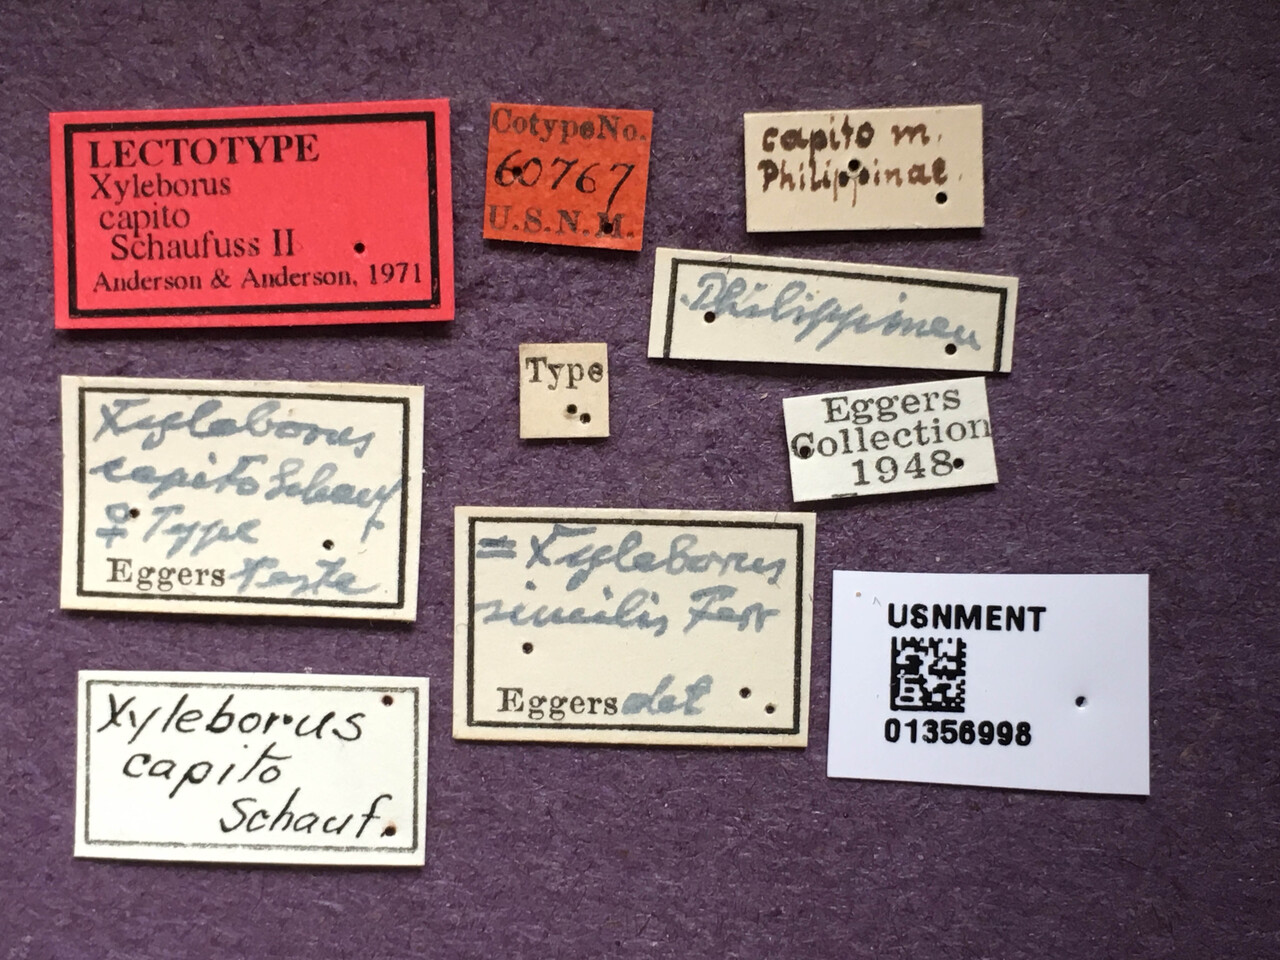 LECTOTYPE
Xyleborus
capito
Schaufuss II
Anderson & Anderson, 1971
CotypeNo.
60767
U.S.N.M.
capito m.
Philippinae.
Philippinen
Type
Eggers
Collection
1948
Xyleborus
capito Schauf
♀ Type
Eggers teste
= Xyleborus
similis Ferr
Eggers det
USNMENT
01356998
Xyleborus
capito
Schauf.